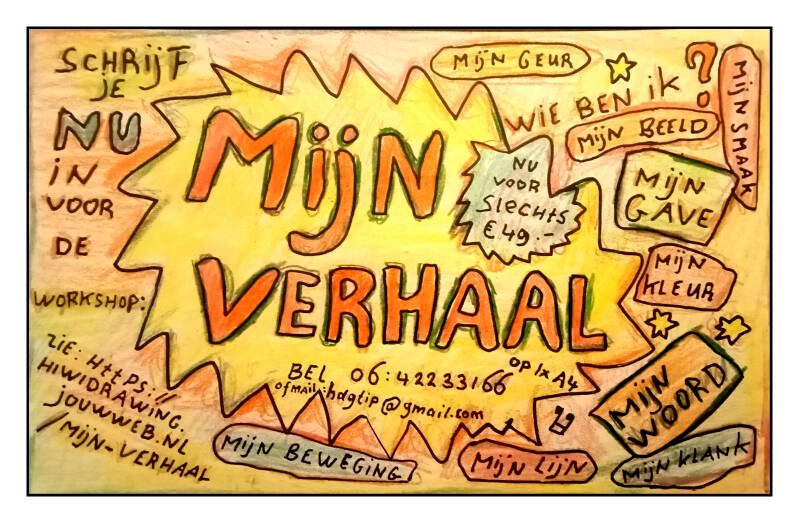 SCHRIJF
JE
NU
IN
VOOR
DE
WORKSHOP:
ZIE: HTTPS://
HIWIDRAWING.
JOUWWEB.NL
/MIJN-VERHAAL
MIJN
VERHAAL
OP 1x A4
BEL 06:42233166
OF MAIL: hdgtip@gmail.com
NU
VOOR
SLECHTS
€ 49.-
MIJN GEUR
WIE BEN IK?
MIJN SMAAK
MIJN BEELD
MIJN
GAVE
MIJN
KLEUR
MIJN
WOORD
MIJN KLANK
MIJN LIJN
MIJN BEWEGING